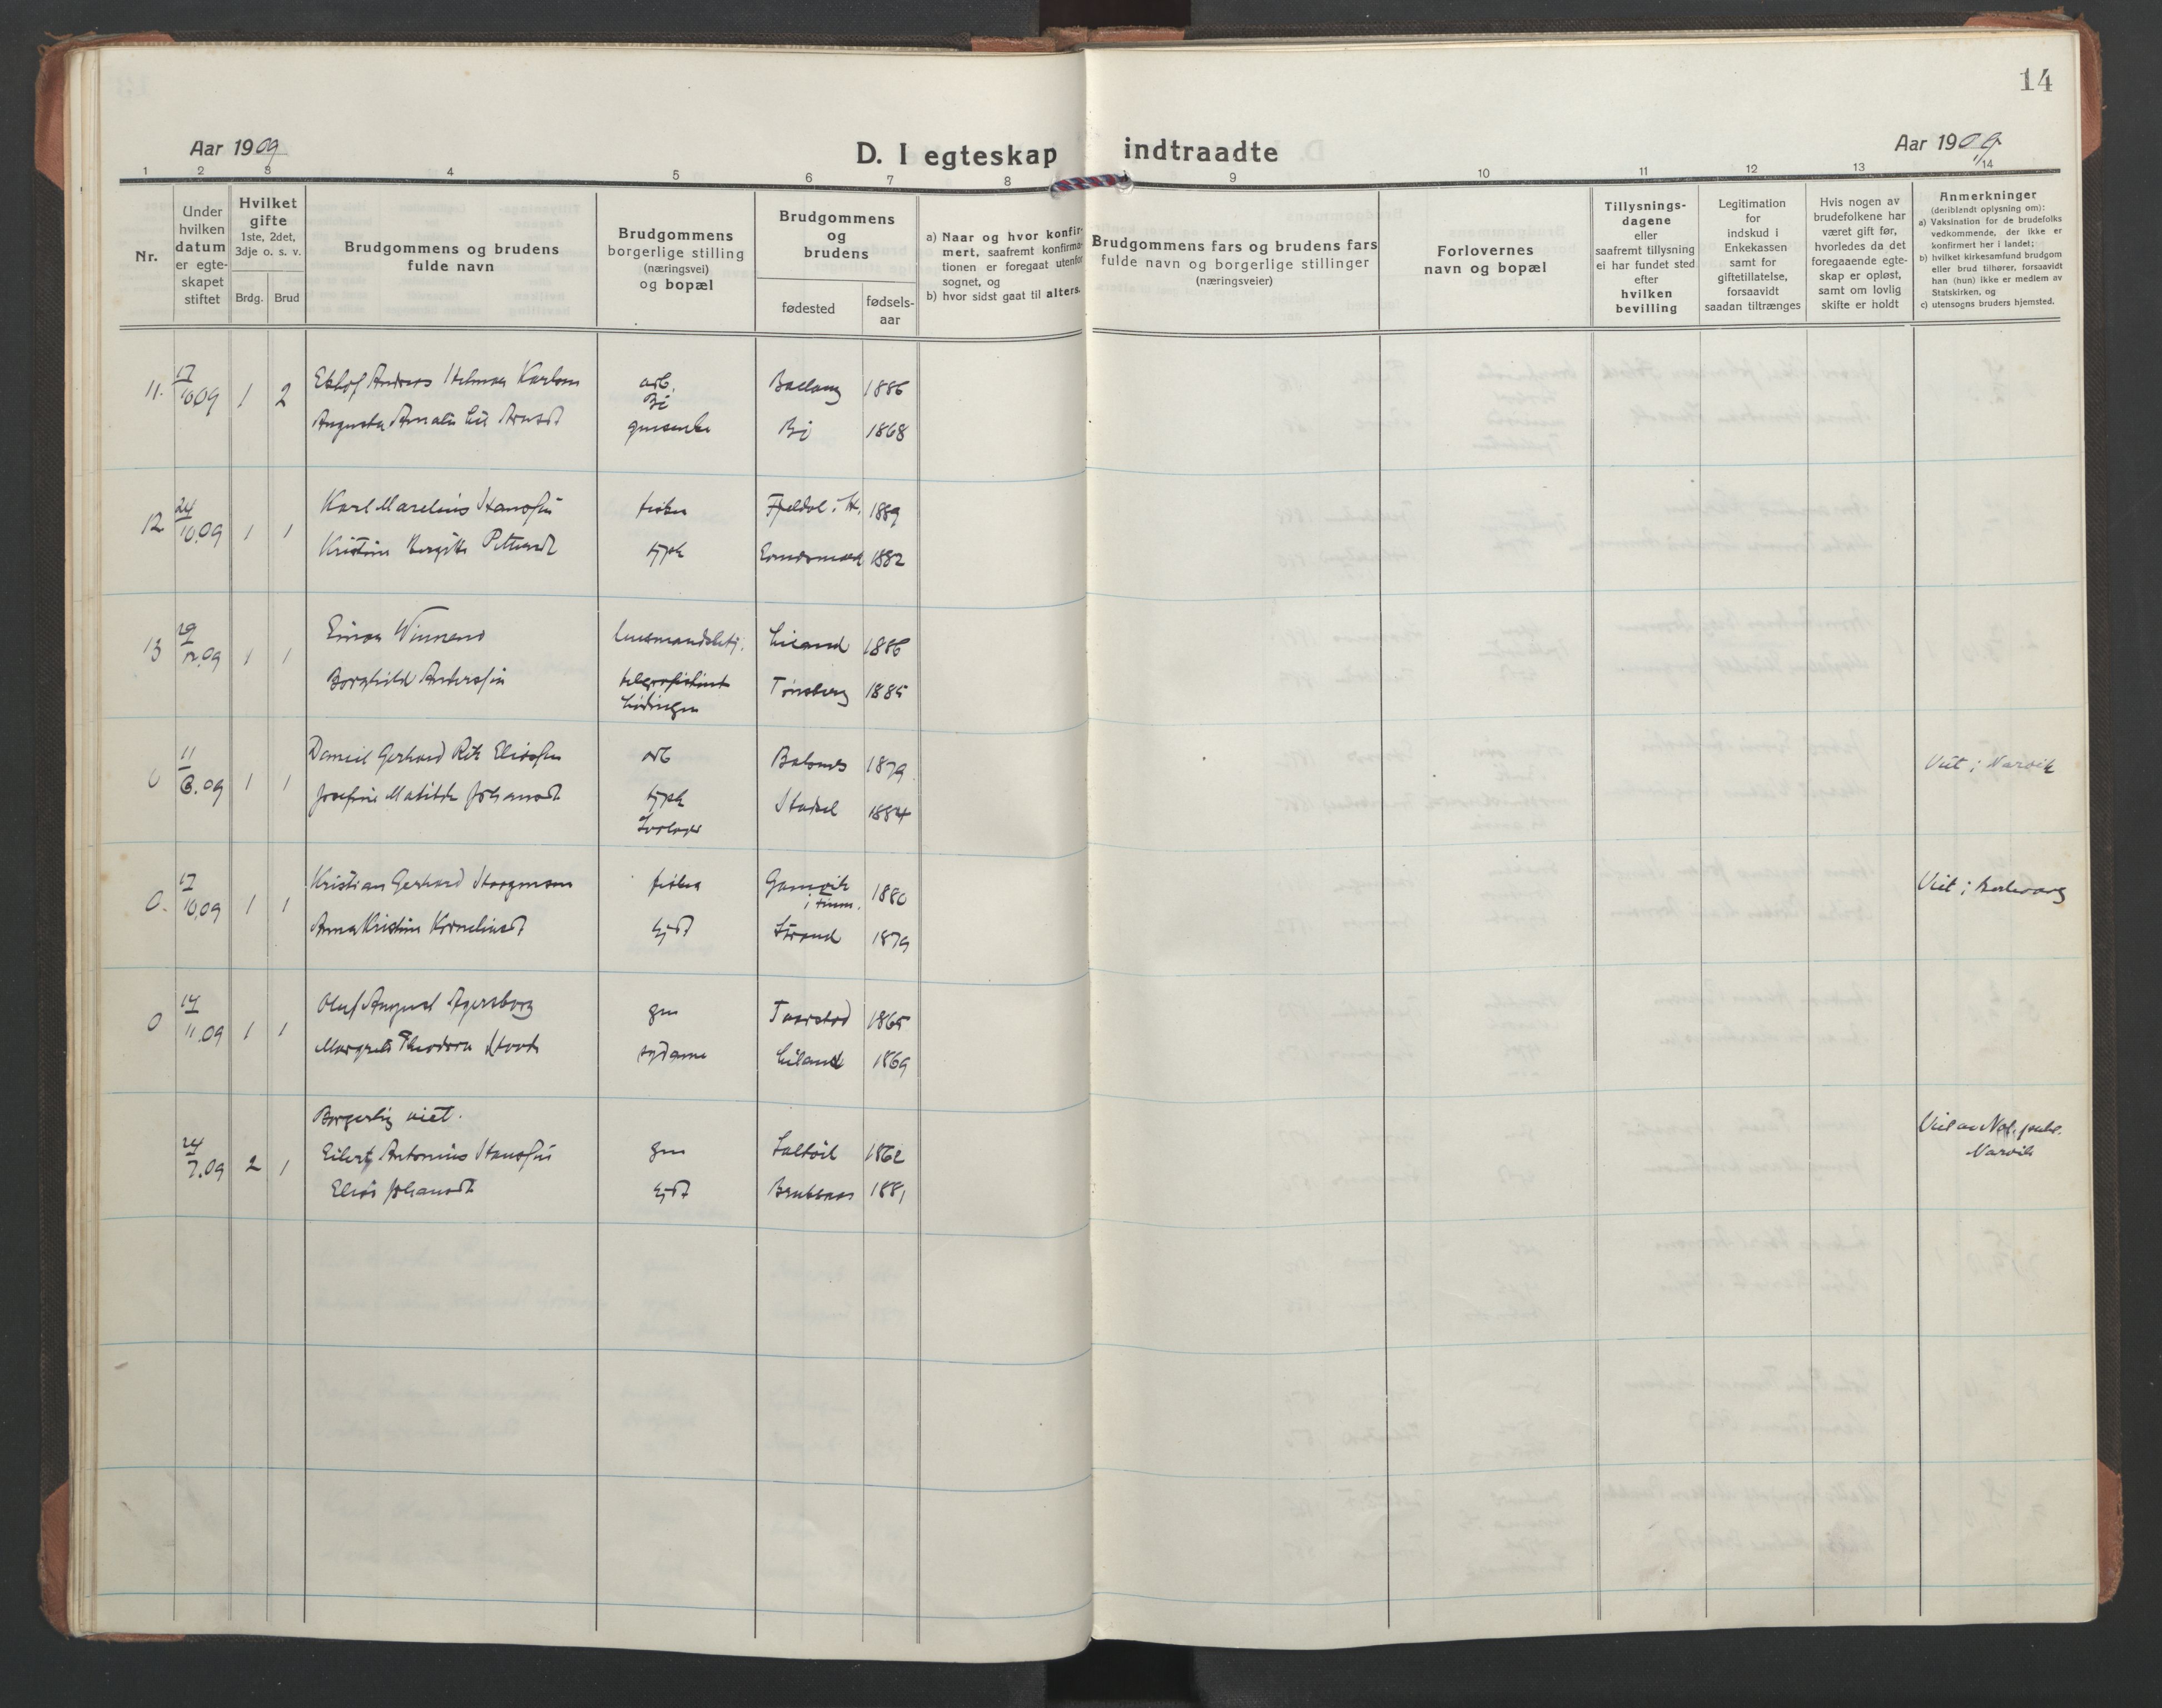 14
Aar 1909
D. I egteskap indtraadte
Aar 1909
1 2 3 4 5 6 7 8 9 10 11 12 13 14
Nr.
Under
hvilken
datum
er egte-
skapet
stiftet
Hvilket
gifte
1ste, 2det,
3dje o. s. v.
Brdg. Brud
Brudgommens og brudens
fulde navn
Brudgommens
borgerlige stilling
(næringsvei)
og bopæl
Brudgommens
og
brudens
fødested
fødsels-
aar
a) Naar og hvor konfir-
mert, saafremt konfirma-
tionen er foregaat utenfor
sognet, og
b) hvor sidst gaat til alters.
Brudgommens fars og brudens fars
fulde navn og borgerlige stillinger
(næringsveier)
Forlovernes
navn og bopæl
Tillysnings-
dagene
eller
saafremt tillysning
ei har fundet sted
efter
hvilken
bevilling
Legitimation
for
indskud i
Enkekassen
samt for
giftetillatelse,
forsaavidt
saadan tiltrænges
Hvis nogen av
brudefolkene har
været gift før,
hvorledes da det
foregaaende egte-
skap er opløst,
samt om lovlig
skifte er holdt
Anmerkninger
(deriblandt oplysning om):
a) Vaksination for de brudefolks
vedkommende, der ikke er
konfirmert her i landet;
b) hvilket kirkesamfund brudgom
eller brud tilhører, forsaavidt
han (hun) ikke er medlem av
Statskirken, og
c) utensogns bruders hjemsted.
11. 17/10 09 1 2 Andreas Hilmar arb. Ballang 1886
Bø
Augusta Amalie Bø 1868
12 24/10.09 1 1 Karl Marelius Hansen fisker Fjeldal i 1889
Kristine Bergitte tjpk 1882
13 29/12.09 1 1 Einar lensmandsbetj. Liland 1886
Borghild Andersen telegrafistinde Tønsberg 1885
Lødingen
0 11/3.09 1 1 Gerhard Eliassen arb 1879 Viet i Narvik
Josefine Matilde Johansdt tjpk 1884
0. 17/10.09 1 1 Kristian Gerhard fisker Gamvik 1880 Viet i Berlevaag
i Finm.
Anna Kristine Korneliusdt Strand 1879
0 14/11.09 1 1 Oluf August Agersborg gm 1865
Margrete Theodora Liland 1869
Borgerlig viet.
24/7.09 2 1 Eilert Antonius Hansen gm 1862 Viet av Not. publ.
Narvik
Johansdt 1881